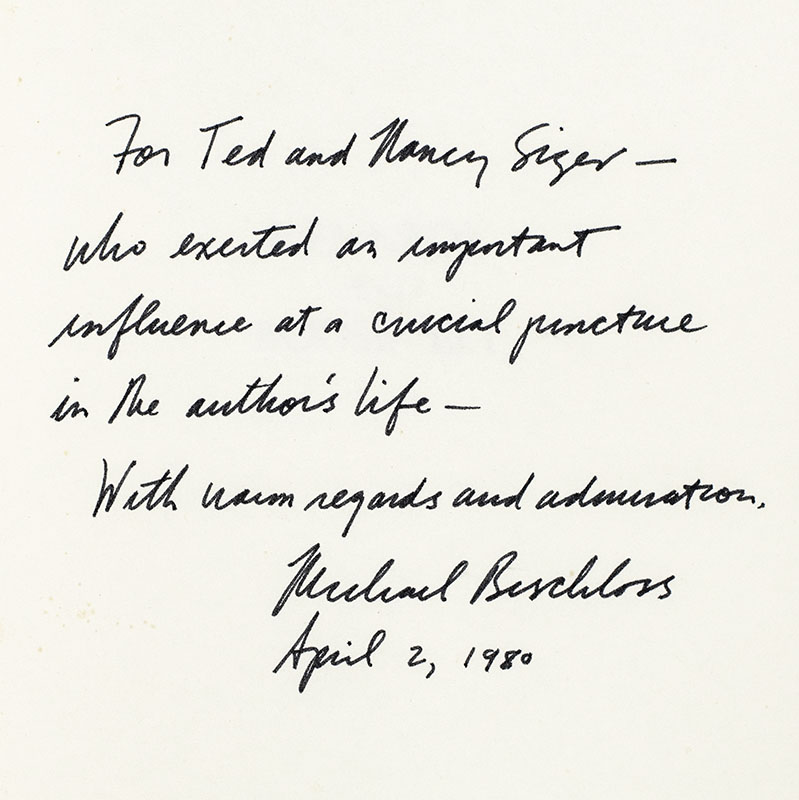 For Ted and Nancy Sizer —
who exerted an important
influence at a crucial juncture
in the author's life —
With warm regards and admiration,
Michael Beschloss
April 2, 1980